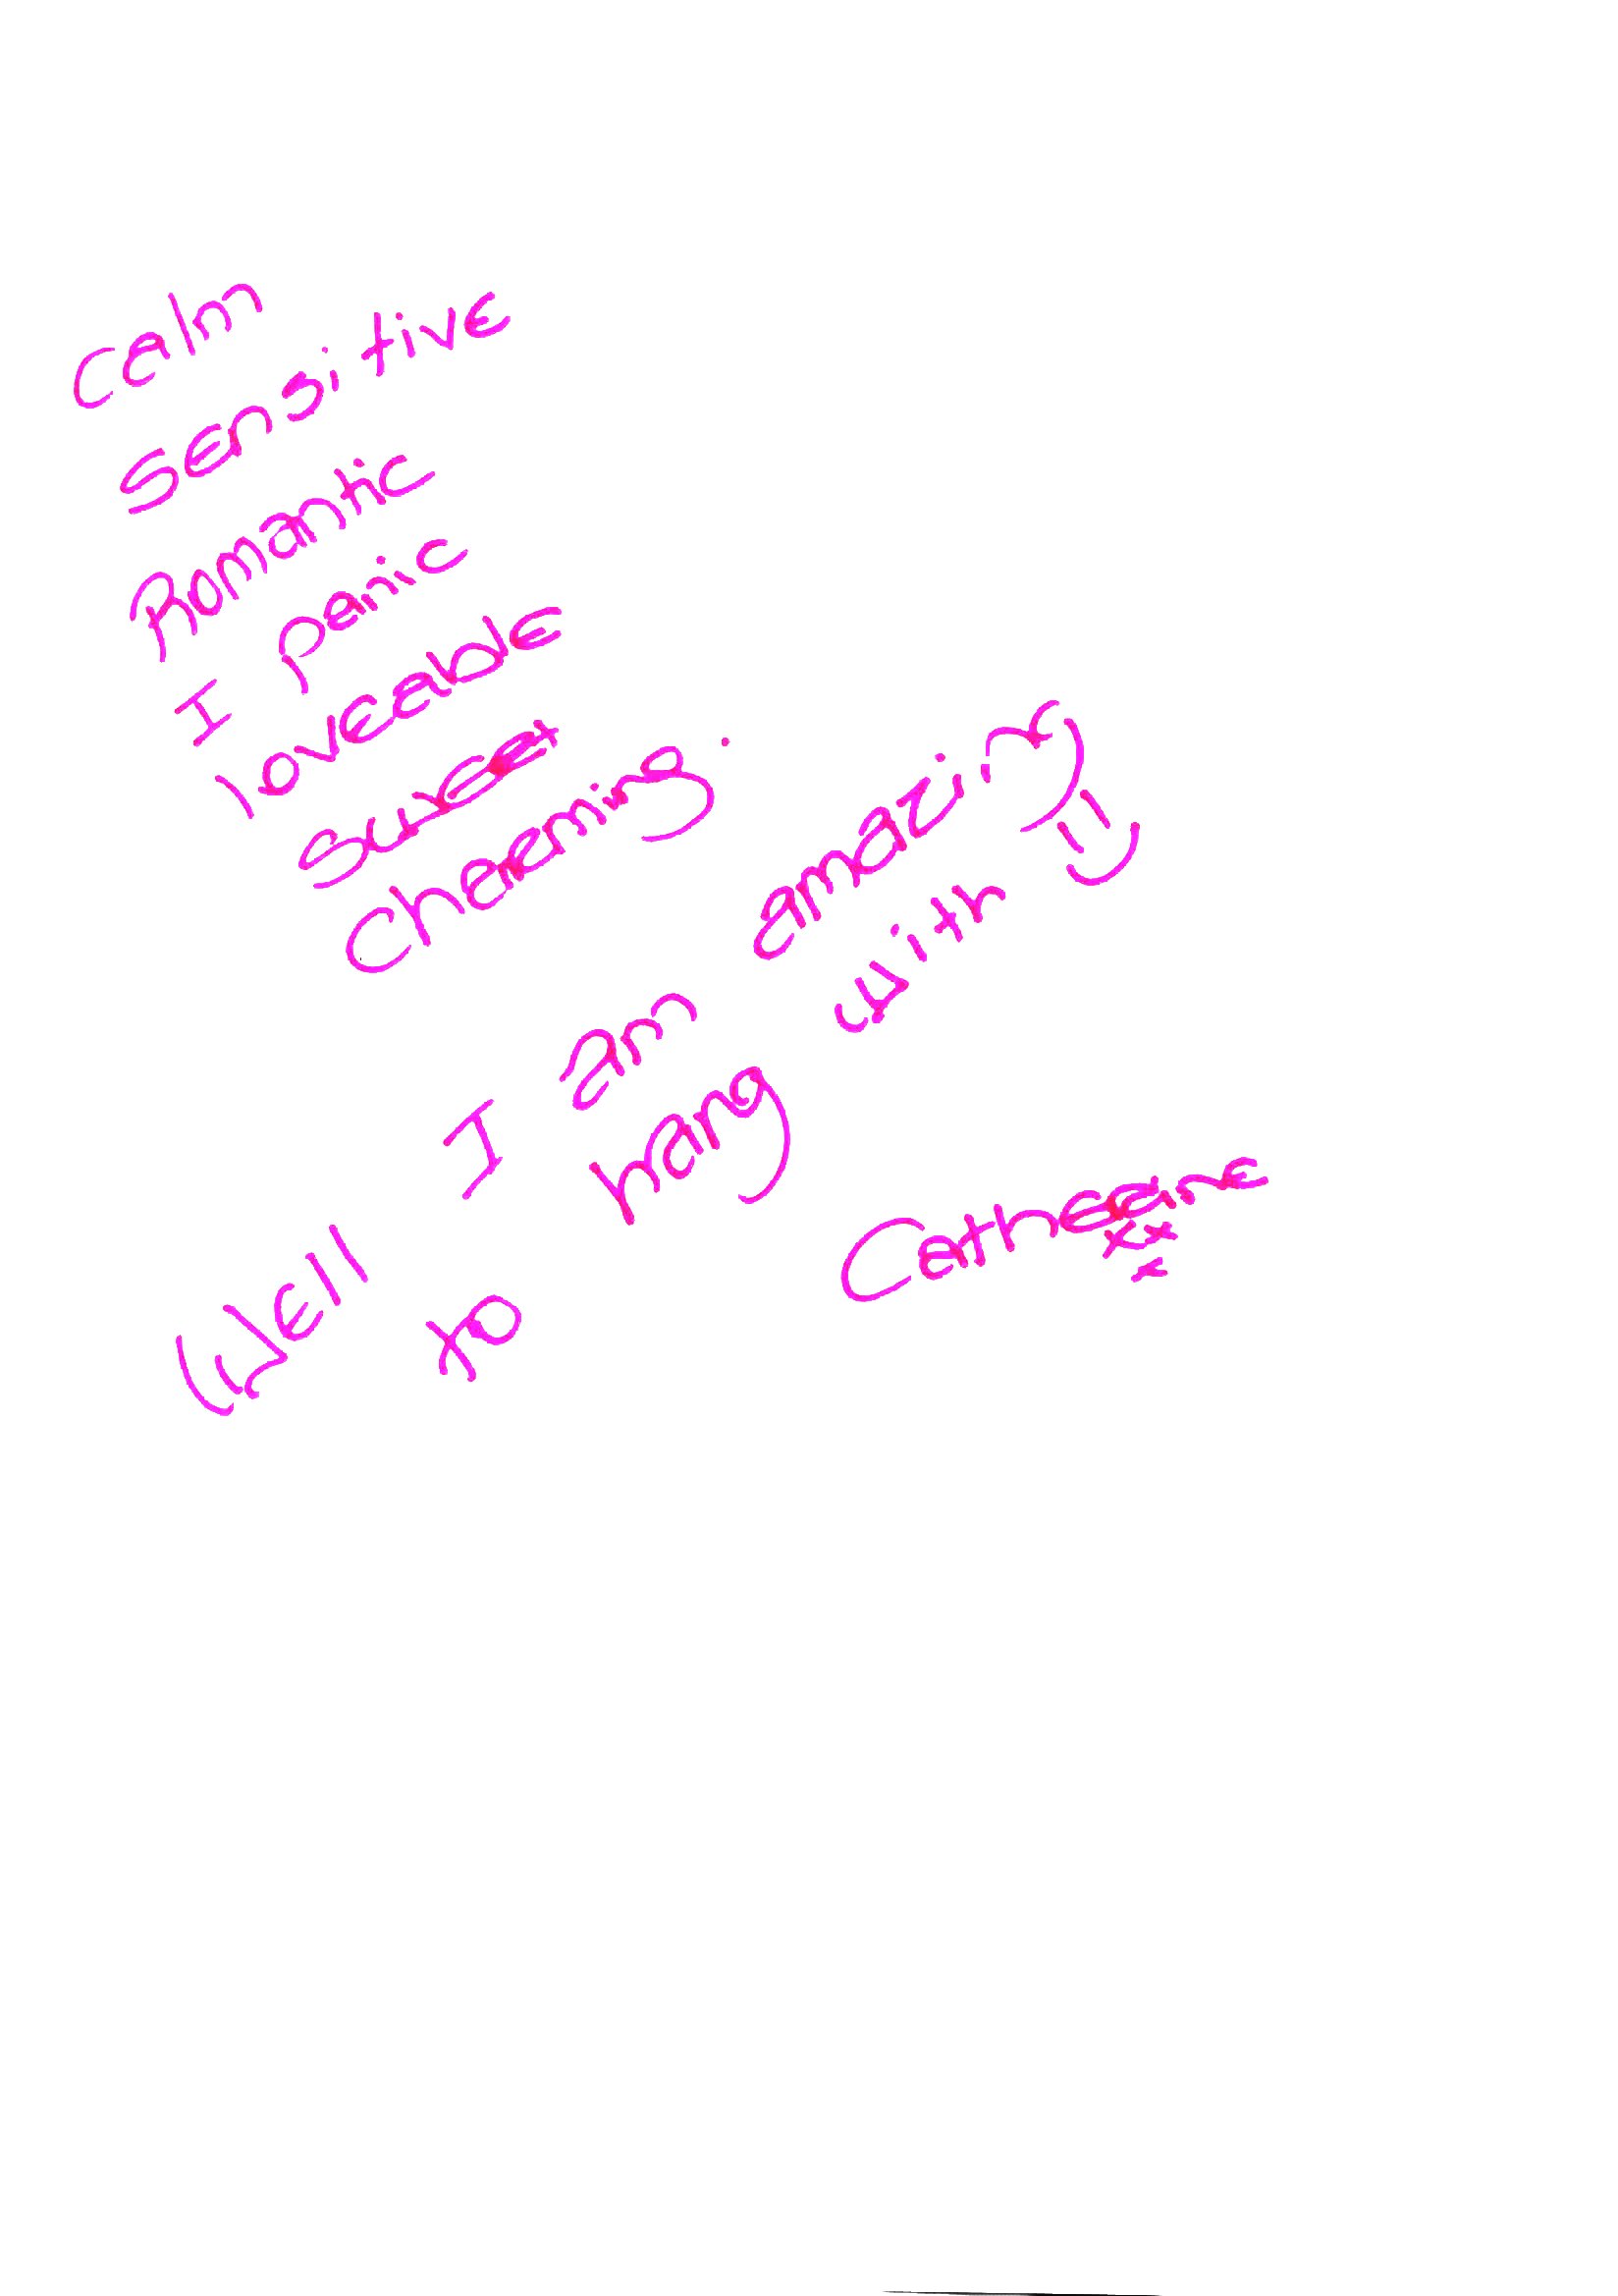 Calm
Sensitive
Romantic
I panic
loveable
Sweet
Charming.
Well I am amazing
to hang with =)
Catherine
xxx